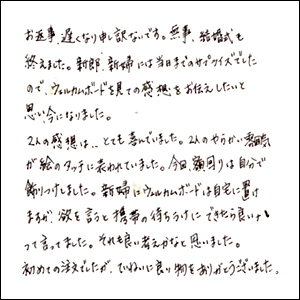 お返事、遅くなり申し訳ないです。無事、結婚式も
終えました。新郎、新婦には当日までのサプライズでした
ので、ウェルカムボードを見ての感想をお伝えしたいと
思い、今になりました。
2人の感想は、とても喜んでいました。2人のやらかい雰囲気
が絵のタッチに表われていました。今回、額回りは自分で
飾りつけしました。新婦はウェルカムボードは自宅に置け
ますが、欲を言うと携帯の待ちうけにできたら良いナ
って言ってました。それも良い考えかなと思いました。
初めての注文でしたが、ていねいに良い物をありがとうございました。